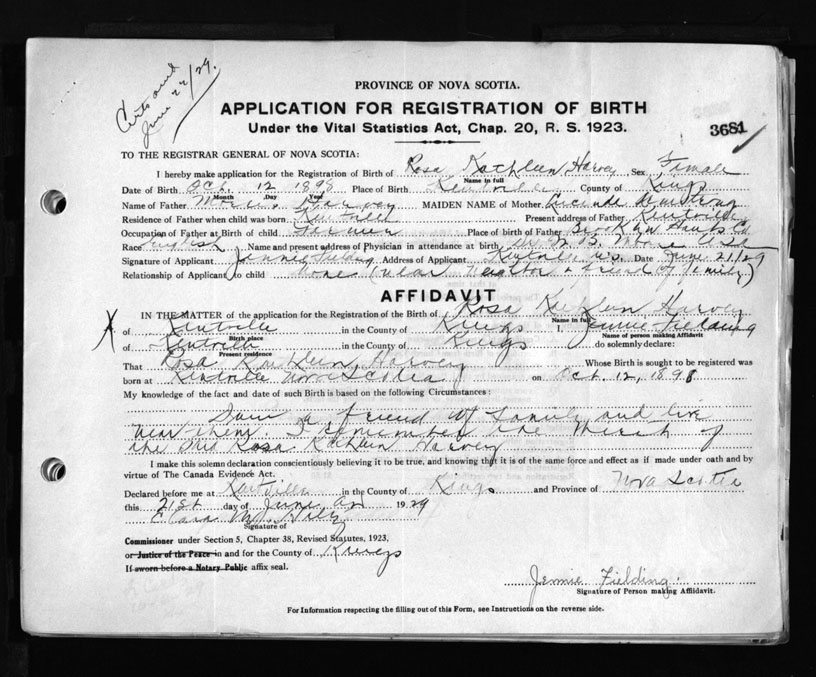 June 22/29.
PROVINCE OF NOVA SCOTIA.
APPLICATION FOR REGISTRATION OF BIRTH
Under the Vital Statistics Act, Chap. 20, R. S. 1923.
3681
TO THE REGISTRAR GENERAL OF NOVA SCOTIA:
I hereby make application for the Registration of Birth of Rosa Kathleen Harvey Sex Female
Name in full
Date of Birth Oct. 12 1898 Place of Birth Kentville County of Kings
Month Day Year
Name of Father Harvey MAIDEN NAME of Mother Armstrong
Residence of Father when child was born Kentville Present address of Father Kentville
Occupation of Father at Birth of child Farmer Place of birth of Father Brooklyn Hants Co.
Race English Name and present address of Physician in attendance at birth Dr. W. B. Moore
Signature of Applicant Jennie Fielding Address of Applicant Kentville N.S. Date June 21/29
Relationship of Applicant to child None (near neighbor & friend of family)
AFFIDAVIT
IN THE MATTER of the application for the Registration of the Birth of Rosa Kathleen Harvey
Name in full
X of Kentville in the County of Kings I, Jennie Fielding
Birth place Name of person making Affidavit
of Kentville in the County of Kings do solemnly declare:
Present residence
That Rosa Kathleen Harvey Whose Birth is sought to be registered was
born at Kentville Nova Scotia on Oct. 12, 1898
My knowledge of the fact and date of such Birth is based on the following Circumstances:
I am a friend of family and live
near them. I remember the birth of
the Rosa Kathleen Harvey
I make this solemn declaration conscientiously believing it to be true, and knowing that it is of the same force and effect as if made under oath and by
virtue of The Canada Evidence Act.
Declared before me at Kentville in the County of Kings and Province of Nova Scotia
this 21st day of June A.D. 1929
Clara M.
Signature of
Commissioner under Section 5, Chapter 38, Revised Statutes, 1923,
or Justice of the Peace in and for the County of Kings
If sworn before a Notary Public affix seal.
Jennie Fielding.
Signature of Person making Affidavit.
For Information respecting the filling out of this Form, see Instructions on the reverse side.